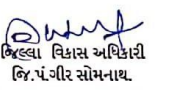 જિલ્લા વિકાસ અધિકારી
જિ.પં.ગીર સોમનાથ.